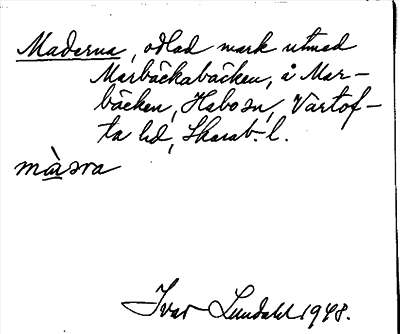 Maderna, odlad mark utmed
Marbäckabäcken, å Mar-
bäcken, Habo sn, Vartof-
ta hd, Skarab. l.
màsra
Ivar Lundahl 1948.